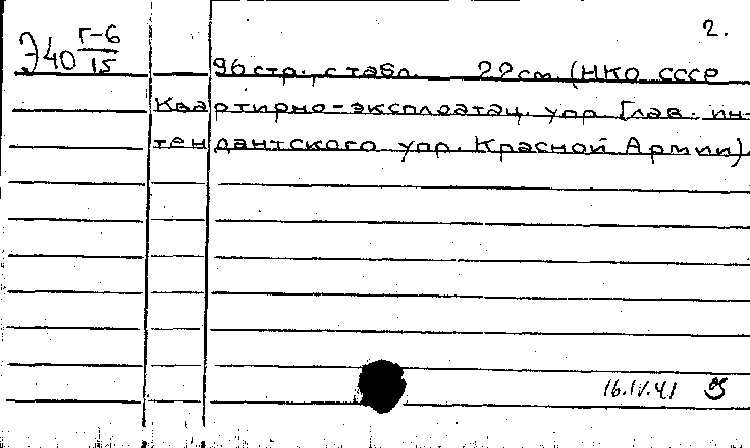 2.
Э40 Г-6/15
96 стр., с табл. 22 см (НКО СССР
Квартирно-эксплоатац. упр Глав. ин-
тендантского упр. Красной Армии).
16.IV.41